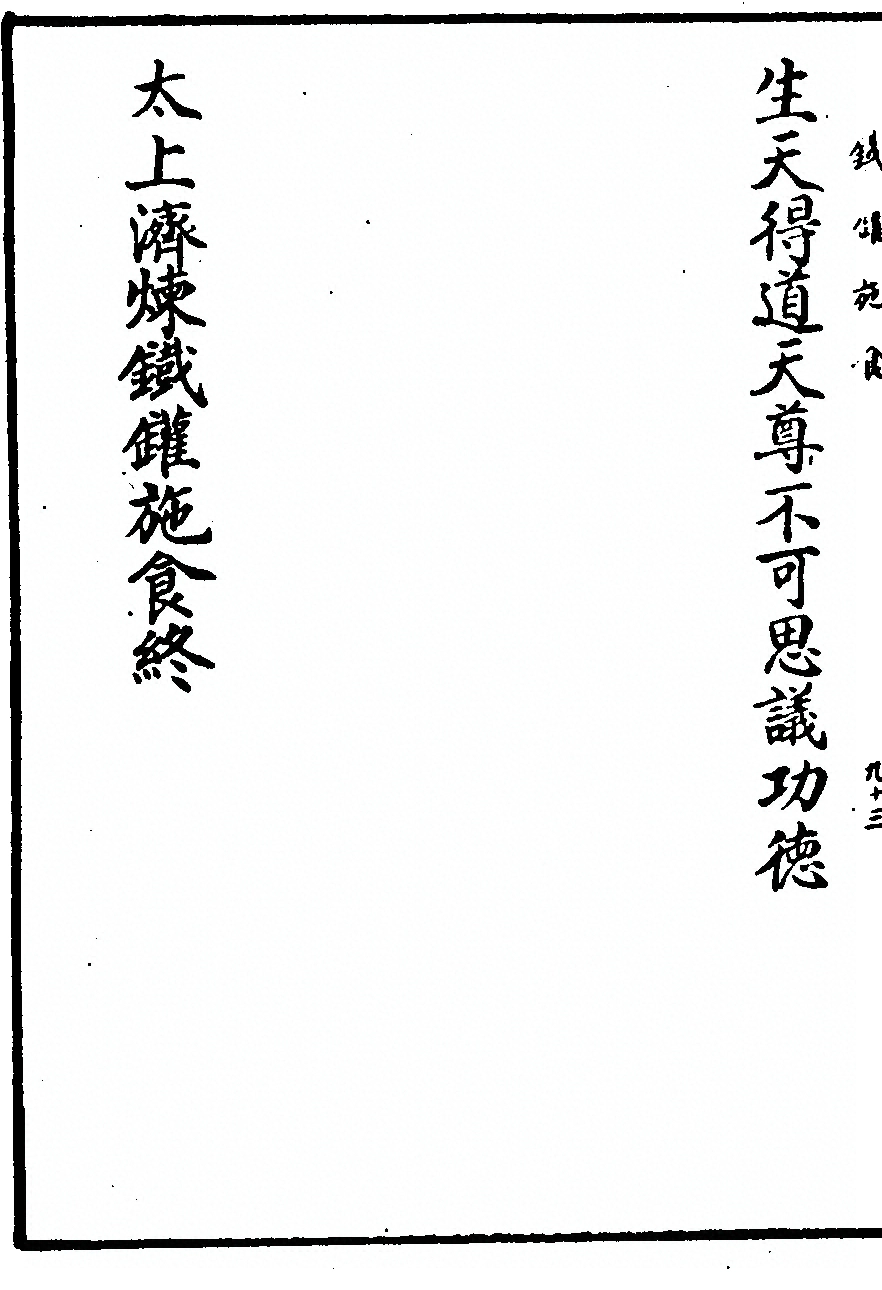 鐵罐施食
九十三
生天得道天尊不可思議功德
太上濟煉鐵罐施食終